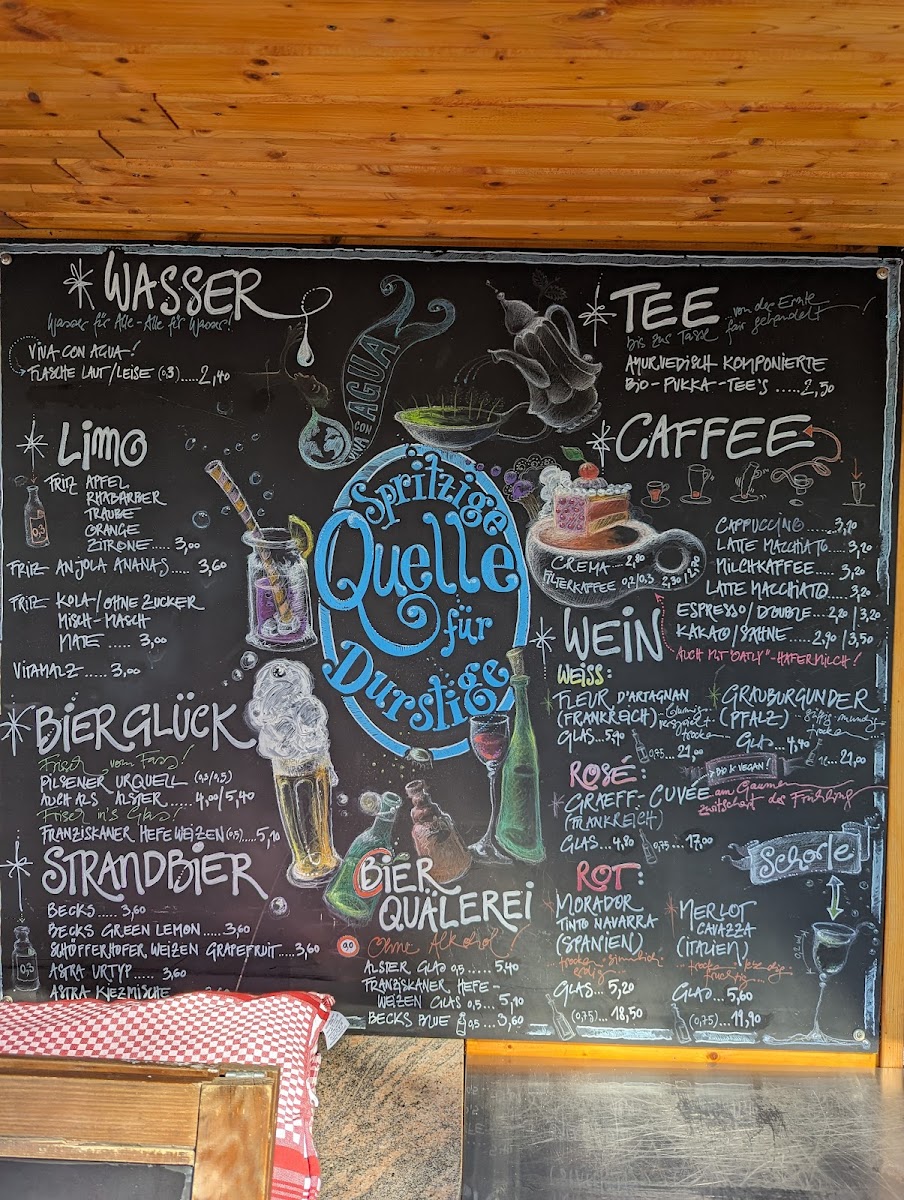 WASSER
Wasser für Alle - Alle für Wasser!
VIVA CON AGUA!
FLASCHE LAUT/LEISE (0,3)....2,40
VIVA CON AGUA
LIMO
0,3
FRITZ APFEL
RHABARBER
TRAUBE
ORANGE
ZITRONE.... 3,00
FRITZ ANJOLA ANANAS.... 3,60
FRITZ KOLA/OHNE ZUCKER
MISCH-MASCH
MATE .... 3,00
VITAMALZ..... 3,00
BIERGLÜCK
Frisch vom Fass!
PILSENER URQUELL (0,3/0,5)
AUCH ALS ALSTER..... 4,00/5,40
Frisch in's Glas!
FRANZISKANER HEFEWEIZEN (0,5)....5,10
STRANDBIER
0,3
BECKS..... 3,60
BECKS GREEN LEMON.... 3,60
SCHÖFFERHOFER WEIZEN GRAPEFRUIT.....3,60
ASTRA URTYP..... 3,60
ASTRA KIEZMISCHE
Spritzige
Quelle
für
Durstige
BIER
QUÄLEREI
0,0
Ohne Alkohol!
ALSTER GLAS 0,5..... 5,40
FRANZISKANER HEFE-
WEIZEN GLAS 0,5.... 5,10
BECKS BLUE 0,5...3,60
TEE
von der Ernte
bis zur Tasse fair gehandelt!
AYURVEDISCH KOMPONIERTE
BIO-PUKKA-TEE'S .....2,50
CAFFEE
CREMA....2,80
FILTERKAFFEE 0,2/0,3 2,30/2,90
CAPPUCCINO.....3,20
LATTE MACCHIATO....3,20
MILCHKAFFEE.... 3,20
LATTE MACCHIATO....3,20
ESPRESSO/DOUBLE...2,20/3,20
KAKAO/SAHNE....2,90/3,50
AUCH MIT "OATLY"-HAFERMILCH!
WEIN
WEISS:
FLEUR D'ARTAGNAN
(FRANKREICH)
trocken
GLAS...5,90
0,75...21,00
GRAUBURGUNDER
(PFALZ)
trocken
GLAS...4,90
...21,00
BIO & VEGAN!
ROSÉ:
GRAEFF-CUVÉE am Gaumen
zwitschert der Frühling
(FRANKREICH)
GLAS...4,80
0,75...17,00
Schorle
ROT:
MORADOR
TINTO NAVARRA
(SPANIEN)
GLAS... 5,20
(0,75)...18,50
MERLOT
CAVAZZA
(ITALIEN)
fruchtig
GLAS...5,60
(0,75)...19,90